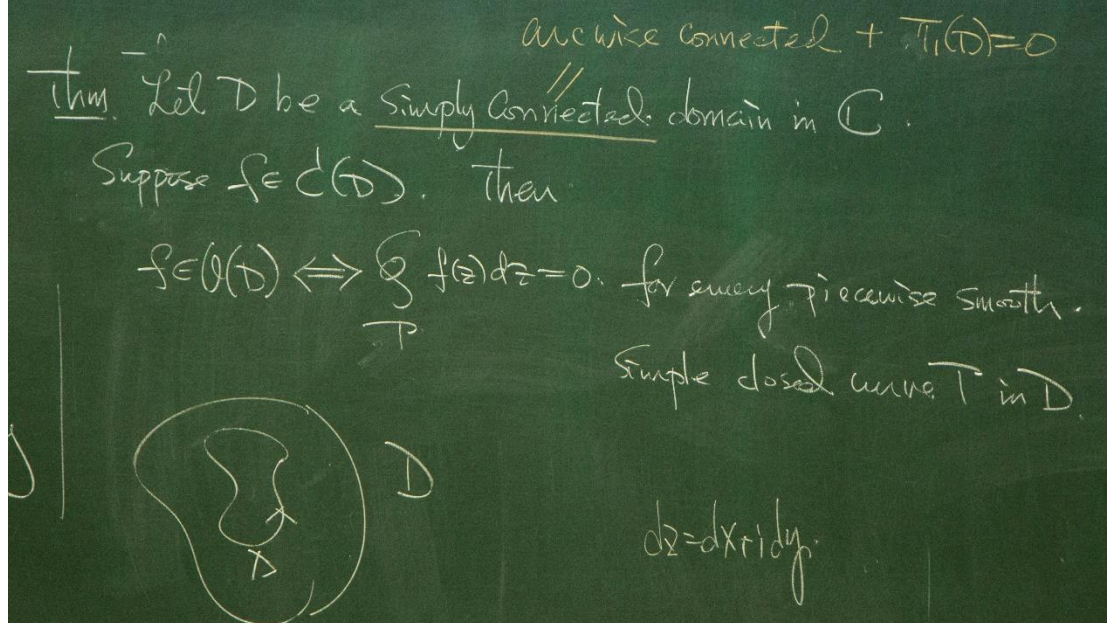 arcwise connected + π₁(D)=0
Thm. Let D be a simply connected domain in ℂ.
Suppose f∈C¹(D). Then
f∈O(D) ⟺ ∮ f(z)dz=0. for every piecewise smooth.
Γ
simple closed curve Γ in D.
D
dz=dx+idy.